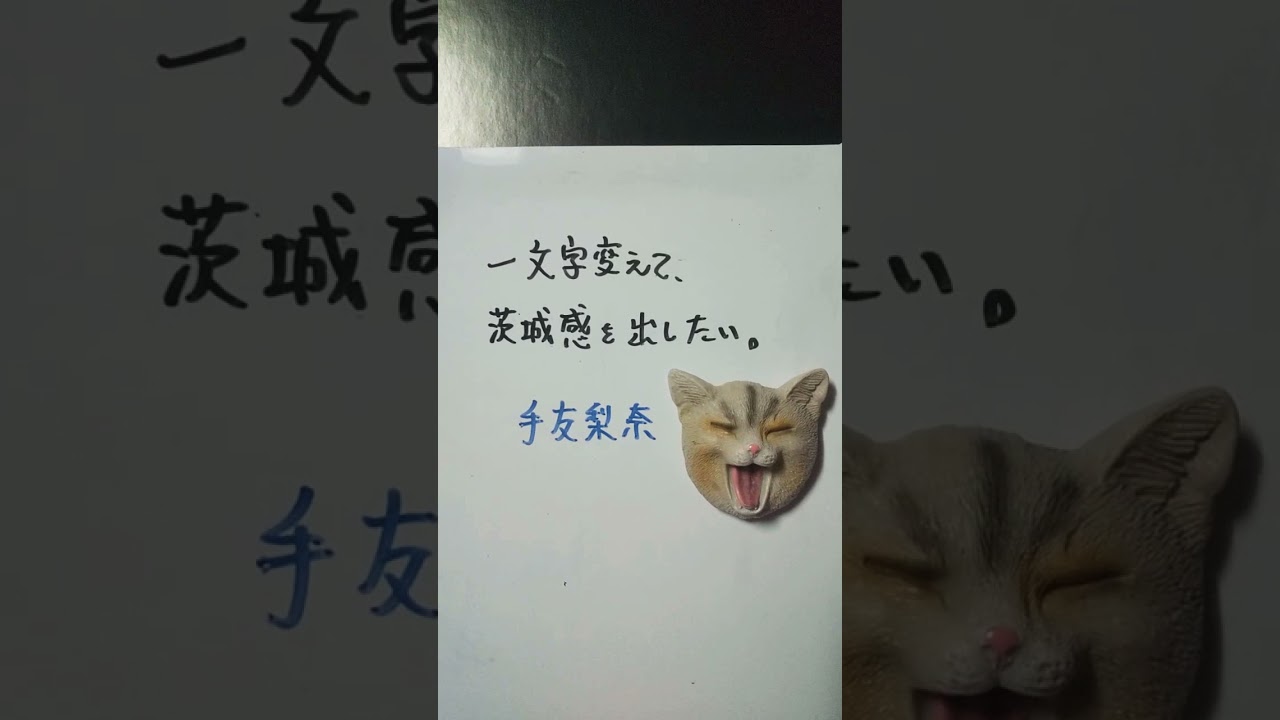 一文字変えて、
茨城感を出したい。
手友梨奈